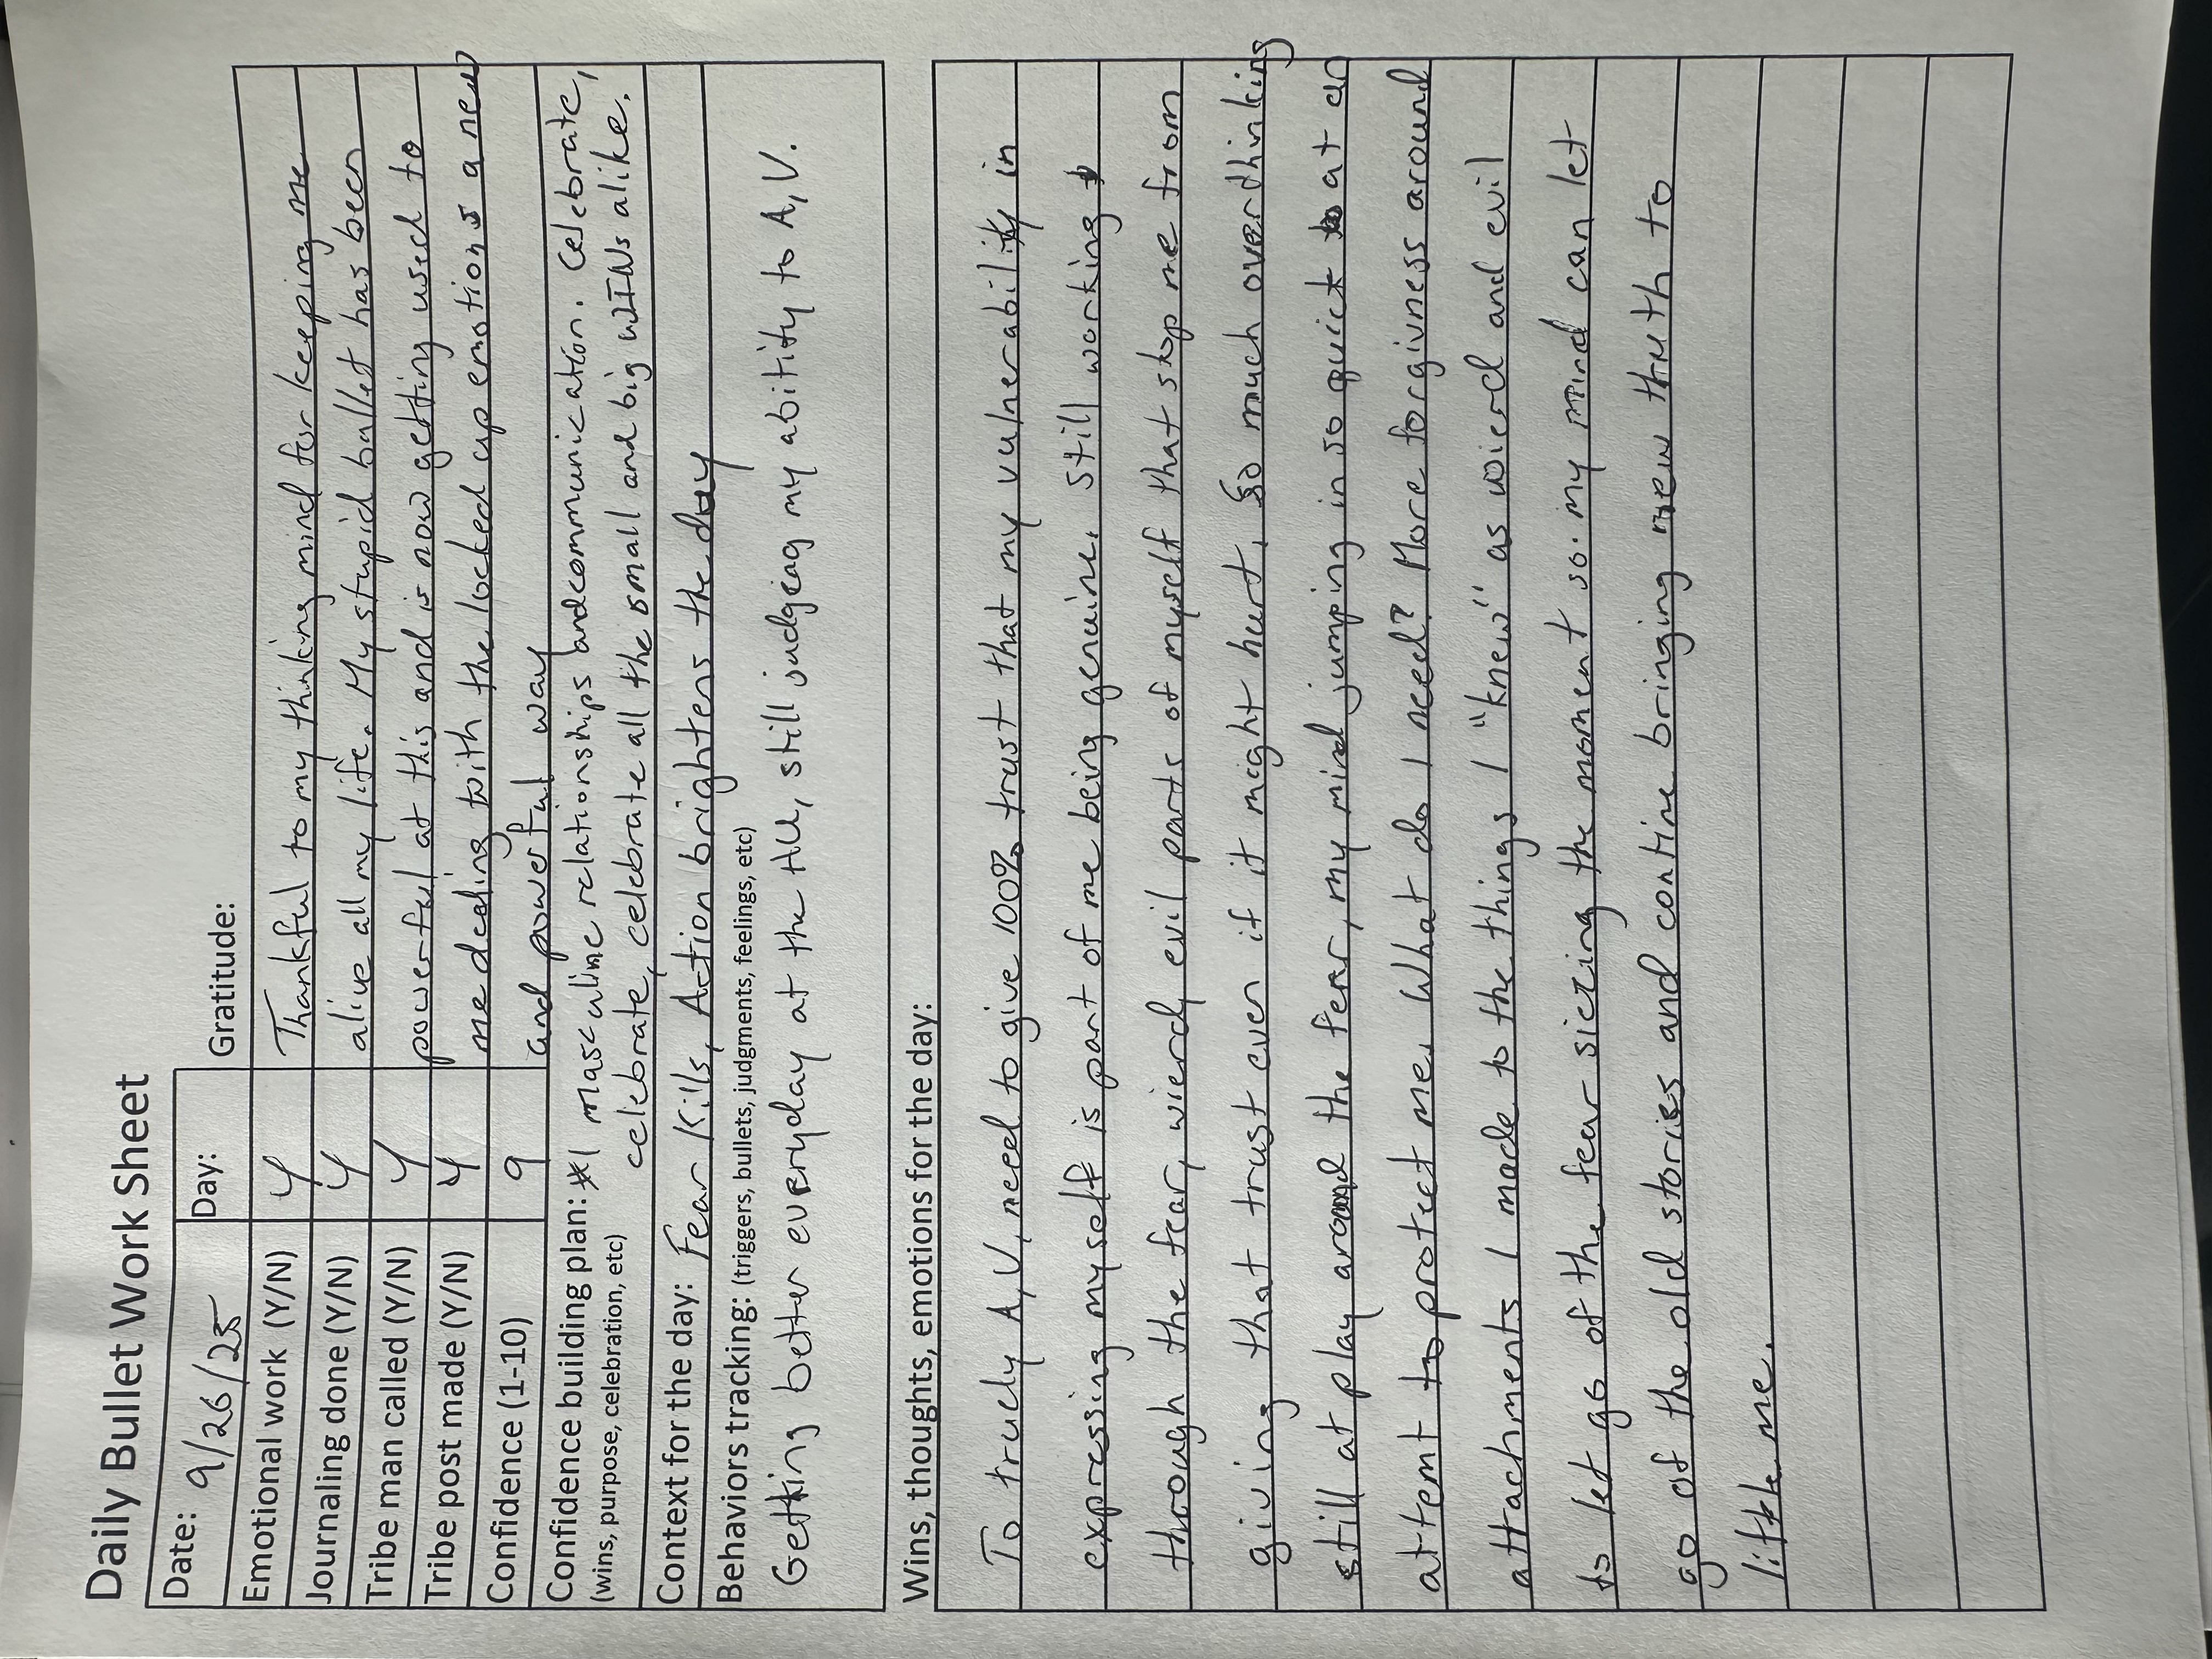 Daily Bullet Work Sheet
Date: 9/26/25
Day:
Gratitude:
Emotional work (Y/N) Y
Thankful to my thinking mind for keeping me
Journaling done (Y/N) Y
alive all my life. My stupid bullet has been
Tribe man called (Y/N) Y
powerful at this and is now getting used to
Tribe post made (Y/N) Y
me dealing with the locked up emotions a new
Confidence (1-10) 9
and powerful way
Confidence building plan: #1 masculine relationships and communication. Celebrate,
(wins, purpose, celebration, etc) celebrate, celebrate all the small and big WINs alike.
Context for the day: Fear Kills, Action brightens the day
Behaviors tracking: (triggers, bullets, judgments, feelings, etc)
Getting better everyday at the AU, still judgeing my abitity to A,V.
Wins, thoughts, emotions for the day:
To truely A,V, need to give 100% trust that my vulnerability in
expressing myself is part of me being genuine. Still working
through the fear, wierd, evil parts of myself that stop me from
giving that trust even if it might hurt, So much overthinking
still at play around the fear, my mind jumping in so quick at an
attemt to protect me. What do I need? More forgivness around
attachments I made to the things I "knew" as wierd and evil
to let go of the fear siezing the moment so my mind can let
go of the old stories and contine bringing new truth to
little me.